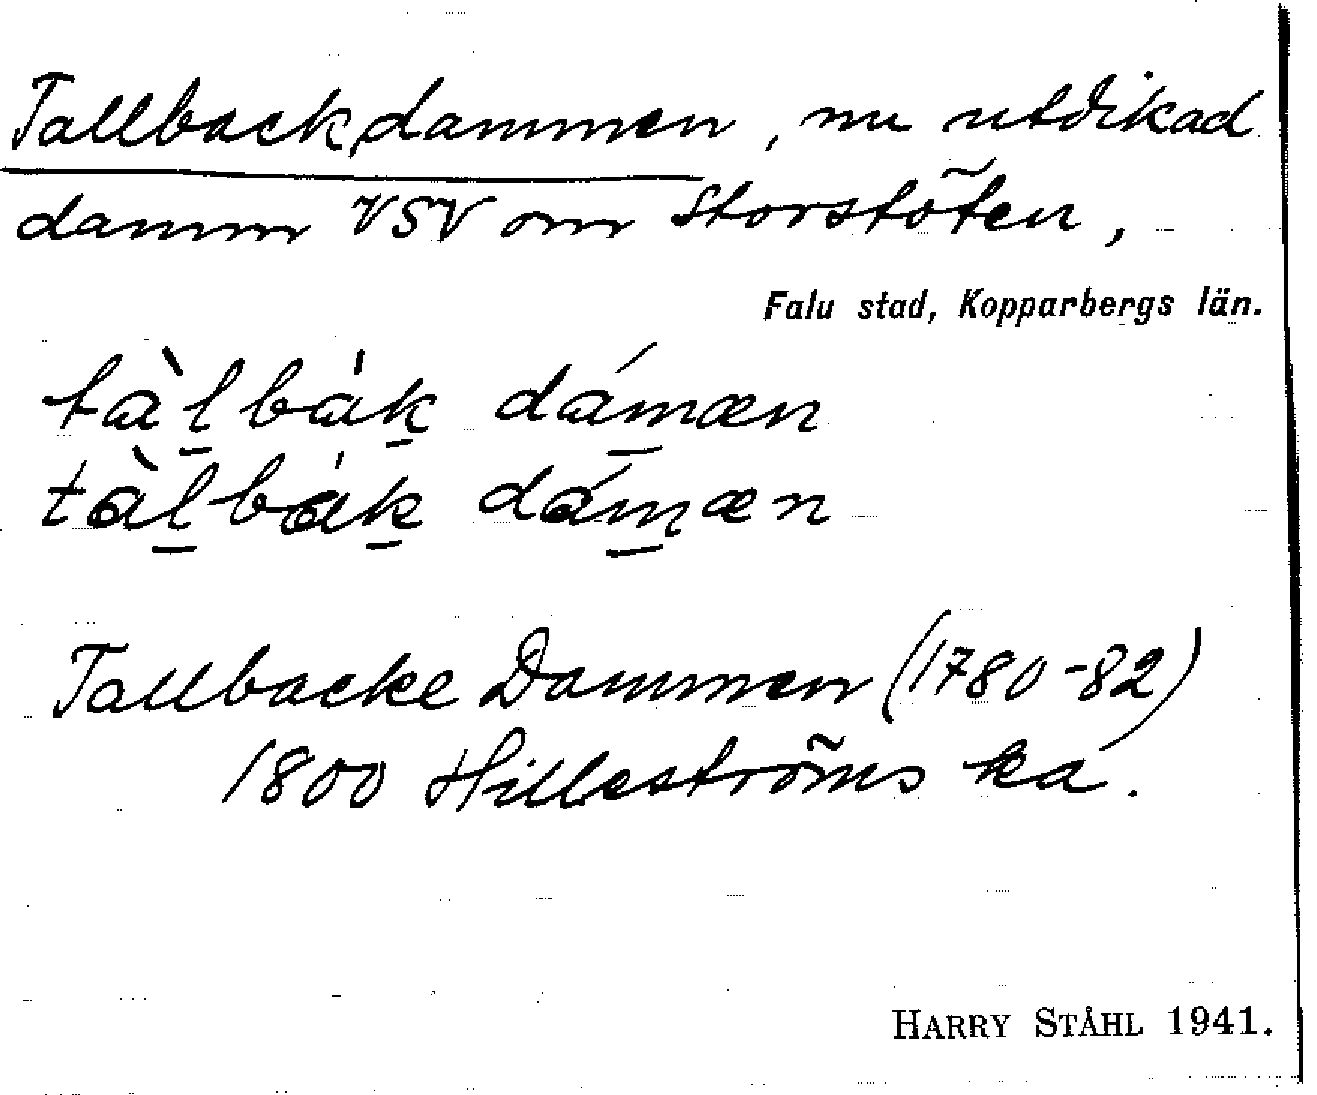 Tallbackdammen, nu utdikad
damm VSV om Storstöten,
Falu stad, Kopparbergs län.
tàḻbáḵ dám̱æn
tàḻbáḵ dám̱æn
Tallbacke Dammen (1780-82)
1800 Hilleströms ka.
HARRY STÅHL 1941.